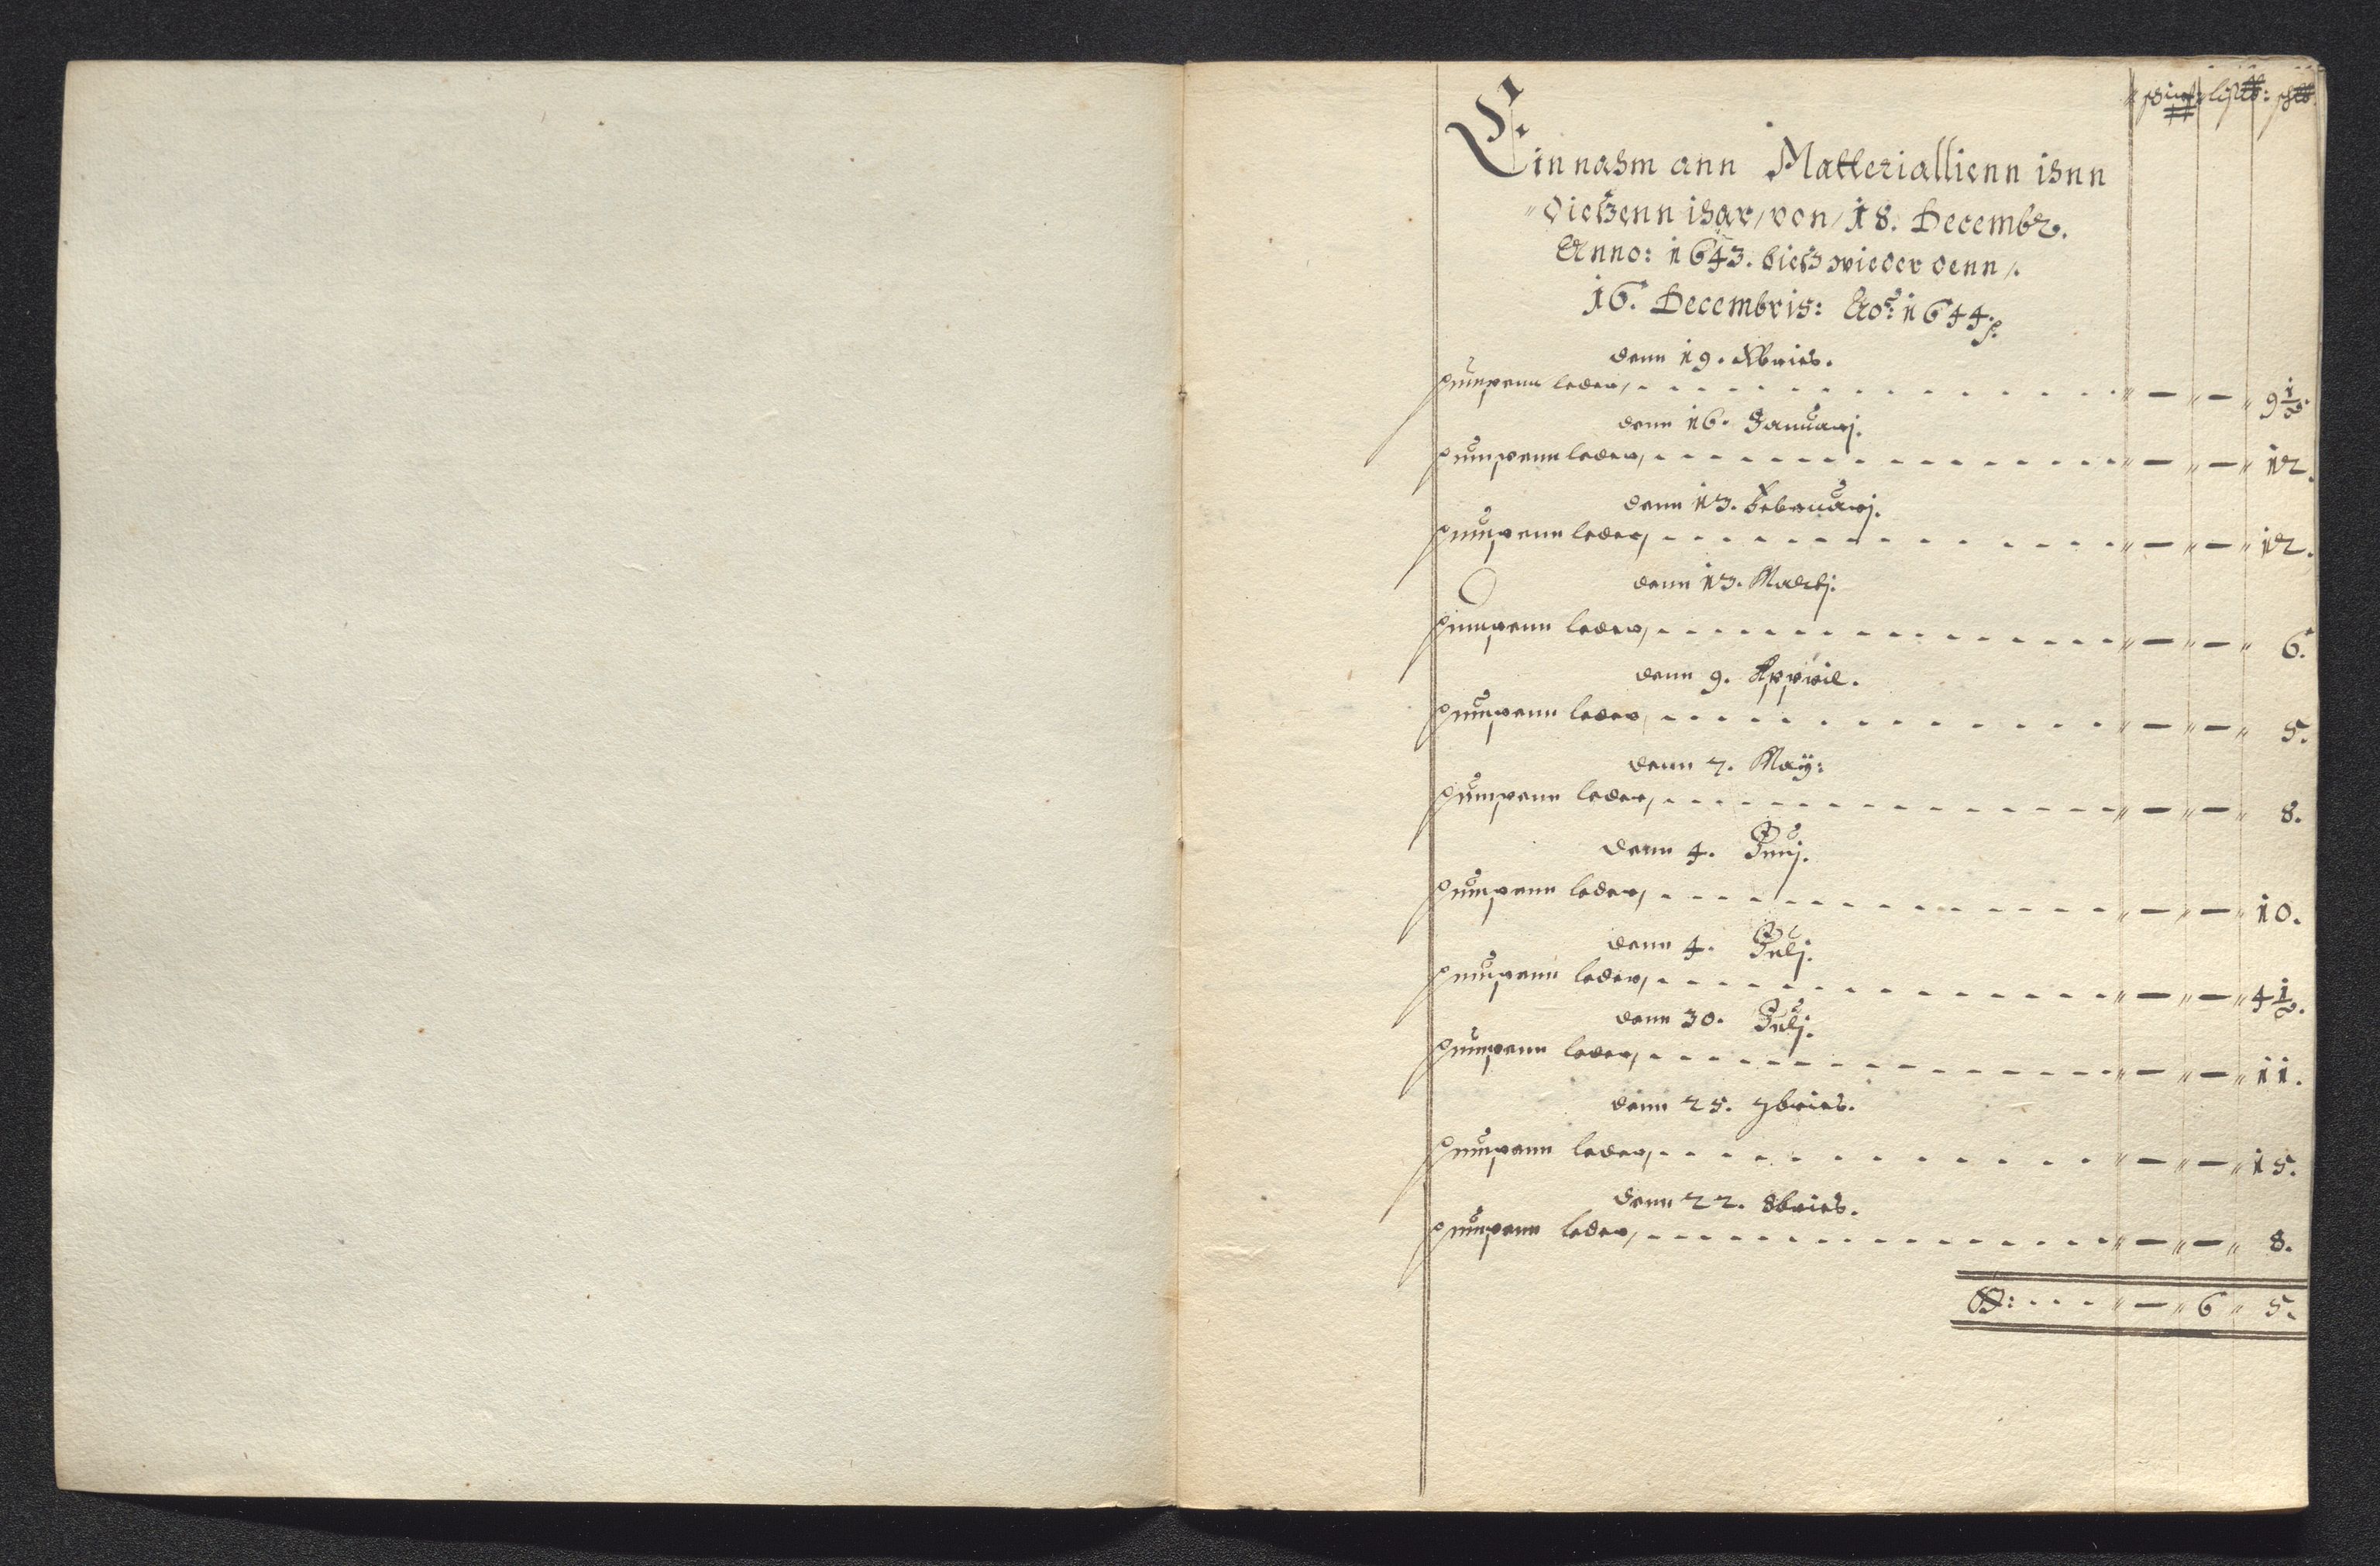 Einnahm ann Matteriallienn ihnn
dieszenn ihar, von, 18. Decembr.
Anno: 1643. biesz wieder denn,
16. Decembris: Ao: 1644
denn 19. Xbries.
pumpenn leder, — — 9 1/2.
denn 16. Januarj.
pumpenn leder, — — 12.
denn 13. Februarj.
pumpenn leder, — — 12.
denn 13. Martj:
pumpenn leder, — — 6.
denn 9. Appril.
pumpenn leder, — — 5.
denn 7. Maÿ:
pumpenn leder, — — 8.
denn 4. Junj.
pumpenn leder, — — 10.
denn 4. Julj.
pumpenn leder, — — 4 1/2.
denn 30. Julj.
pumpenn leder, — — 11.
denn 25. 7bries.
pumpenn leder, — — 15.
denn 22. 8bries.
pumpenn leder, — — 8.
— 6 5.